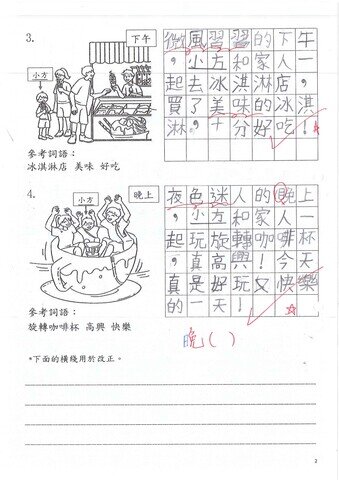 3.
下午
小方
微風習習的下午
，小方和家人一
起去冰淇淋店，
買了美味的冰淇
淋，十分好吃！
參考詞語：
冰淇淋店 美味 好吃
4.
小方
晚上
夜色迷人的晚上
，小方和家人一
起玩旋轉咖啡杯
，真高興！今天
真是好玩又快樂
的一天！
參考詞語：
旋轉咖啡杯 高興 快樂
晚( )
*下面的橫綫用於改正。
2